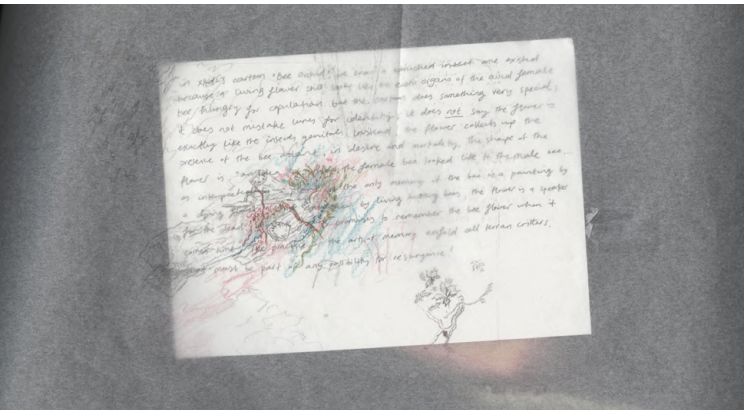 in xkcd's cartoon "Bee orchid" we see a vanished insect once existed
because a living flower still looks like the erotic organs of the avid female
bee hungry for copulation but the cartoon does something very special;
it does not mistake lures for identity; it does not say the flower is
exactly like the insects genitals. instead the flower collects up the
presence of the bee aslant, in desire and mortality. the shape of the
flower is "an idea of what the female bee looked like to the male bee...
as interpreted by a plant the only memory of the bee is a painting by
a dying flower" by living buzzing bees, the flower is a speaker
for the dead promises to remember the bee flower when it
comes the practice of the arts of memory enfold all terran critters.
must be part of any possibility for resurgence!